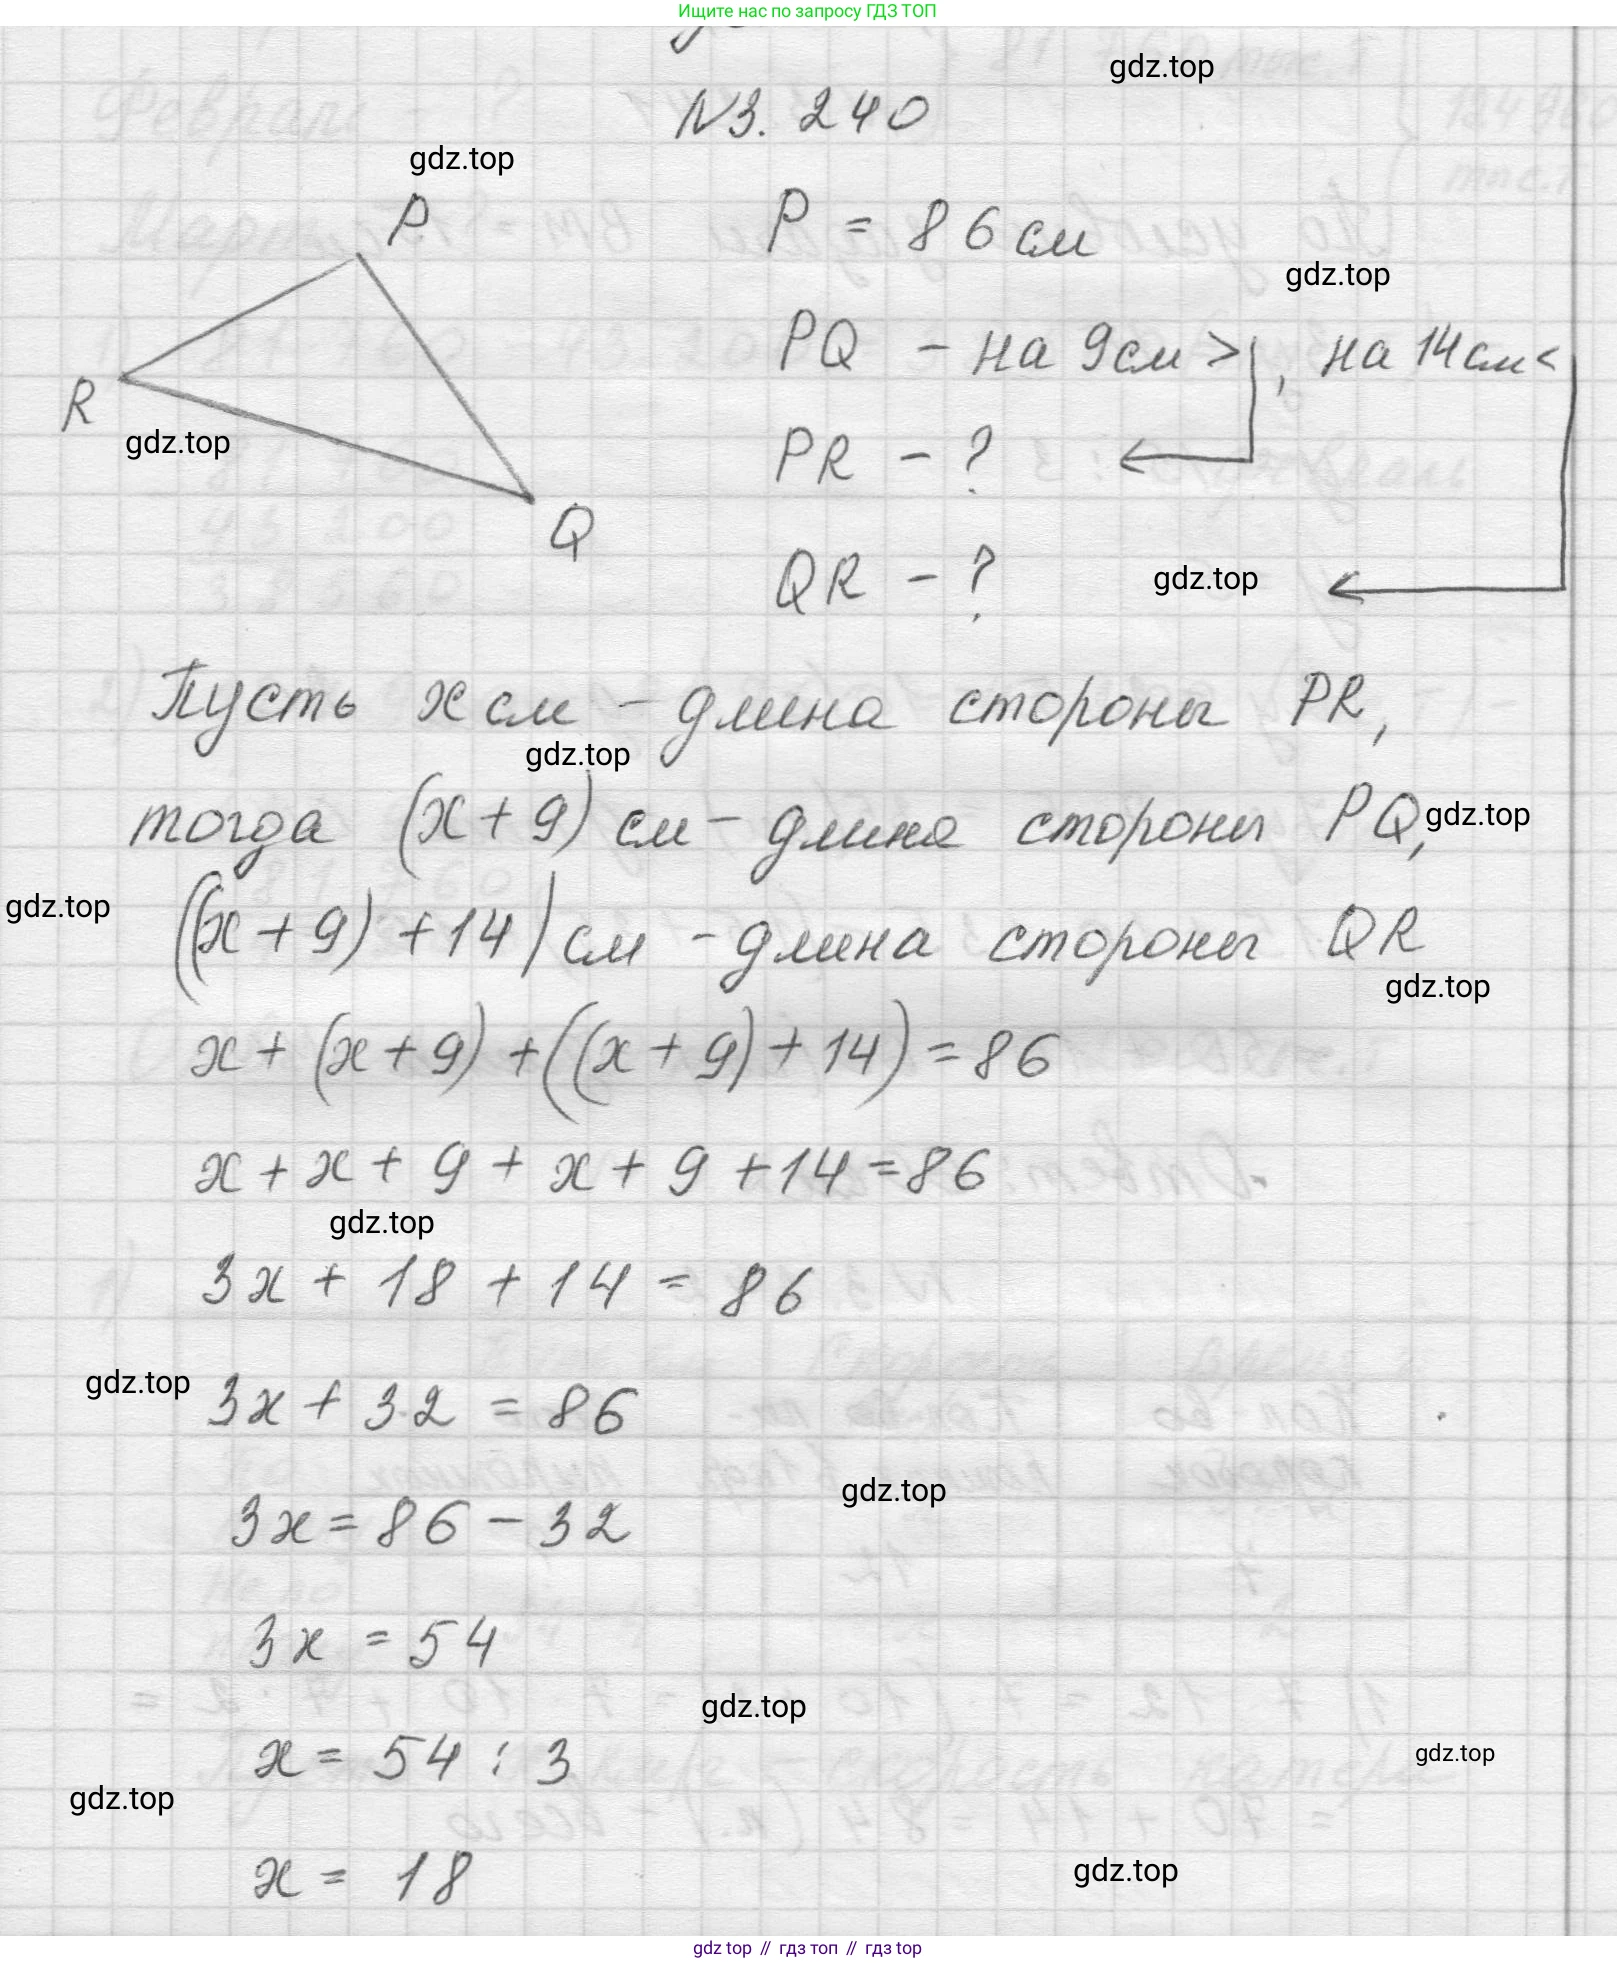 Ищите нас по запросу ГДЗ ТОП
gdz.top
№3. 240
gdz.top
P
P = 86 см
gdz.top
PQ - на 9 см >, на 14 см <
R
gdz.top
PR - ?
Q
QR - ?
gdz.top
Пусть x см - длина стороны PR,
gdz.top
тогда (x + 9) см - длина стороны PQ,
gdz.top
gdz.top
((x + 9) + 14) см - длина стороны QR
gdz.top
x + (x + 9) + ((x + 9) + 14) = 86
x + x + 9 + x + 9 + 14 = 86
gdz.top
3x + 18 + 14 = 86
gdz.top
3x + 32 = 86
gdz.top
3x = 86 - 32
3x = 54
gdz.top
x = 54 : 3
gdz.top
gdz.top
x = 18
gdz.top
gdz top // гдз топ // гдз top